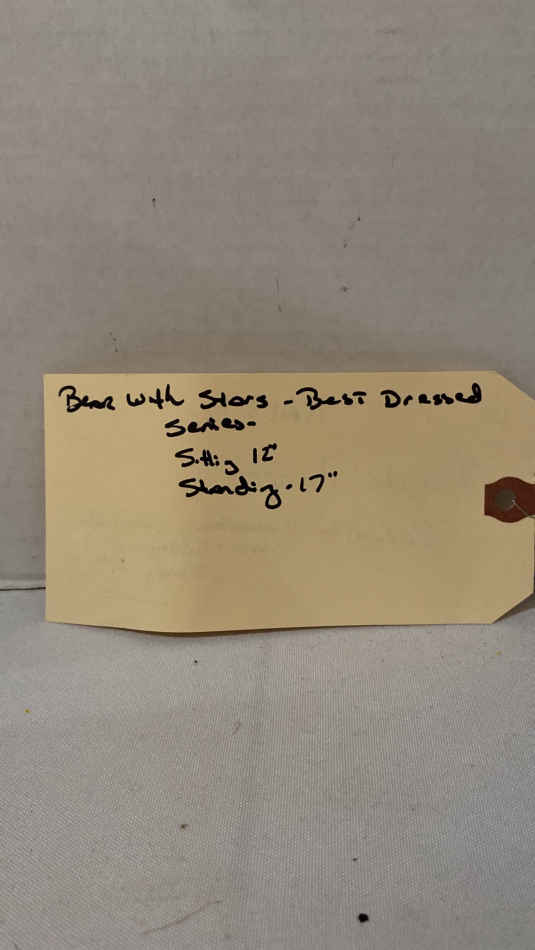 Bear with Stars - Best Dressed
Series-
Sitting 12"
Standing - 17"